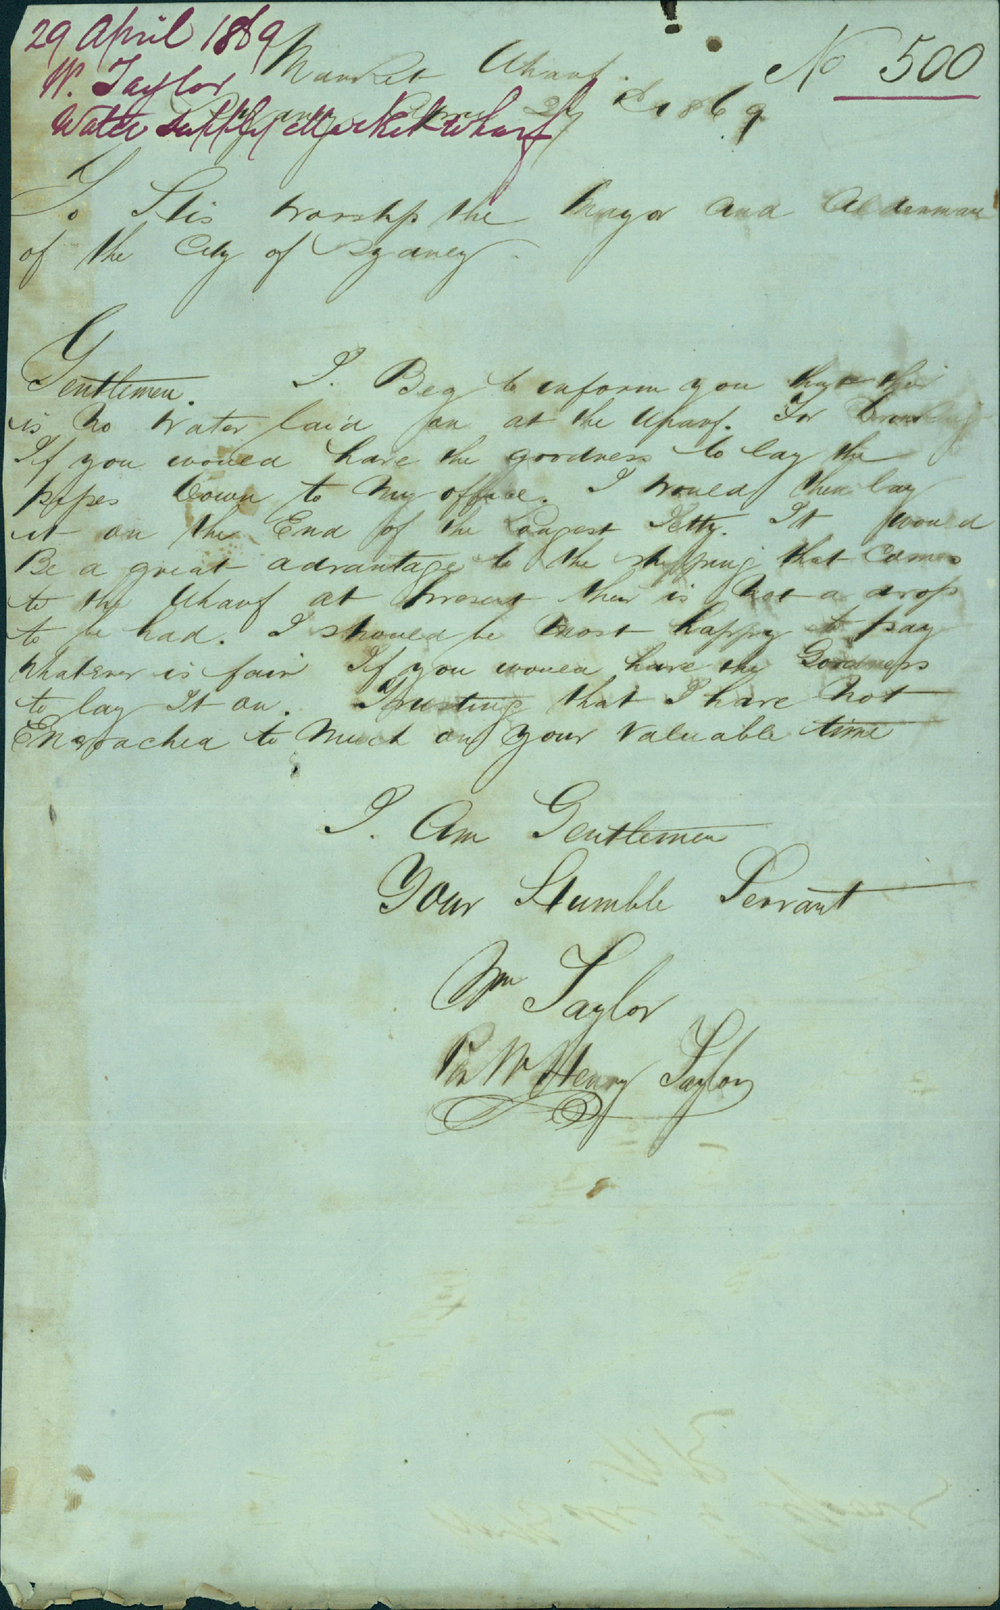 29 April 1869
W. Taylor
Water Supply Market Wharf
No 500
Market Wharf
1869
To His Worship the Mayor and Aldermane
of the City of Sydney
Gentlemen. I. Beg to inform you that their
is No Water laid on at the Wharf. For
If you would have the goodness to lay the
pipes Down to My office. I would then lay
it on the End of the Longest Jetty. It would
Be a great advantage to the shipping that Comes
to the Wharf at Present their is Not a drop
to be had. I should be Most happy to pay
Whatever is fair If you would have the Goodness
to lay It on. Trusting that I have Not
Encroached to Much on your Valuable time
I. Am Gentlemen
Your Humble Servant
Wm Taylor
Per Wm Henry Taylor